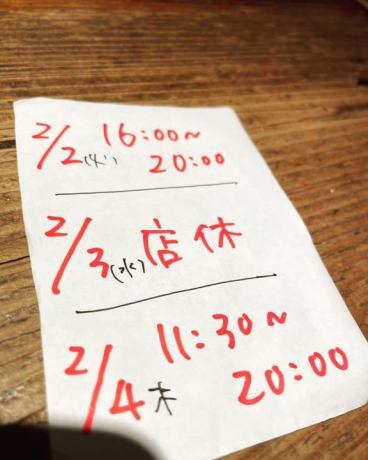 2/2(火) 16:00~
20:00
2/3(水) 店休
2/4木 11:30~
20:00